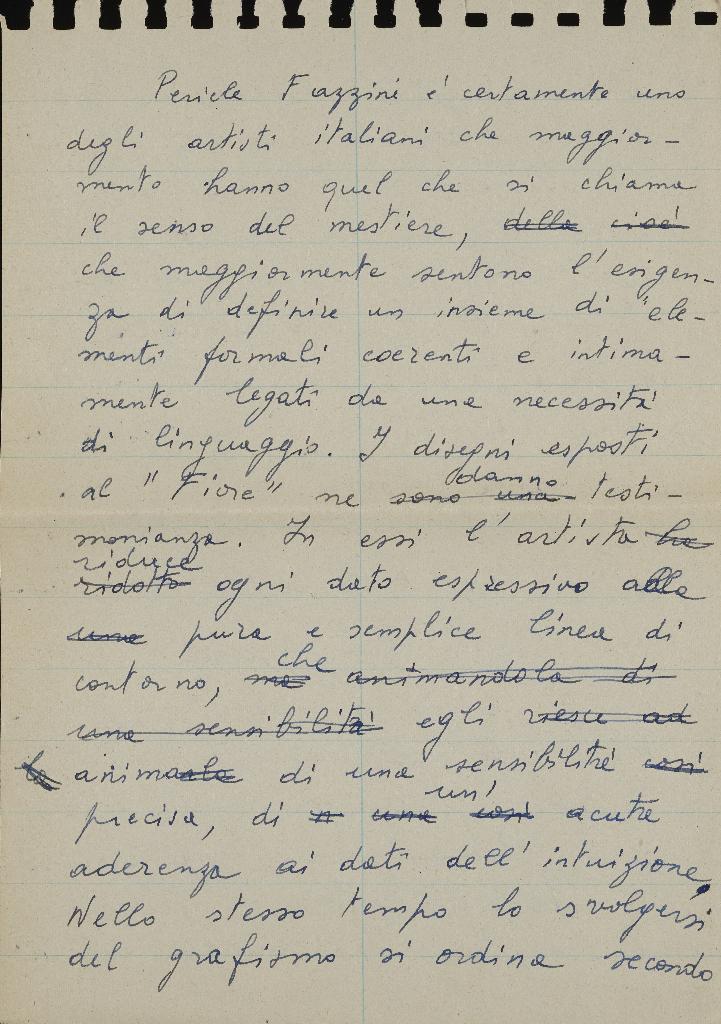 Pericle Fazzini é certamente uno
degli artisti italiani che maggior-
mente hanno quel che si chiama
il senso del mestiere, della cioé
che maggiormente sentono l'esigen-
za di definire un insieme di ele-
menti formali coerenti e intima-
mente legati da una necessità
di linguaggio. I disegni esposti
danno
al "Fiore" ne sono una testi-
monianza. In essi l'artista ha
riduce
ridotto ogni dato espressivo alla
una pura e semplice linea di
che
contorno, ma animandola di
una sensibilità egli riesce ad
la animarla di una sensibilité cosi
un'
precisa, di n una cosi acuta
aderenza ai dati dell'intuizione.
Nello stesso tempo lo svolgersi
del grafismo si ordina secondo